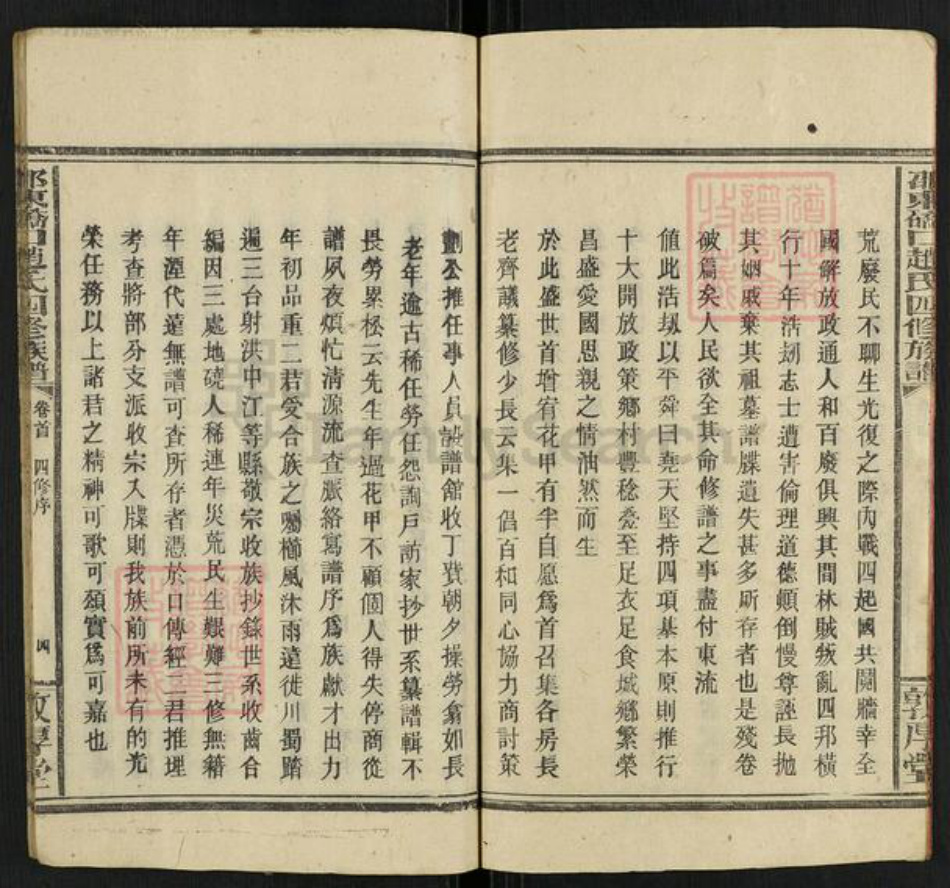 邵東橋口趙氏四修族譜
敦厚堂
荒廢民不聊生光復之際內戰四起國共鬩牆幸全
國解放政通人和百廢俱興其間林賊叛亂四邦橫
行十年浩刼志士遭害倫理道德頓倒慢尊誣長拋
其姻戚棄其祖墓譜牒遺失甚多所存者也是殘卷
破篇矣人民欲全其命修譜之事盡付東流
值此浩刼以平舜日堯天堅持四項基本原則推行
十大開放政策鄉村豐稔叁至足衣足食城鄉繁榮
昌盛愛國思親之情油然而生
於此盛世首增宥花甲有半自愿為首召集各房長
老齊議纂修少長云集一倡百和同心協力商討策
劃公推任事人員設譜舘收丁費朝夕操勞翕如長
老年逾古稀任勞任怨詢戶訪家抄世系纂譜輯不
畏勞累松云先生年過花甲不顧個人得失停商從
譜夙夜煩忙清源流查脈絡寫譜序為族獻才出力
年初品重二君受合族之囑櫛風沐雨遠徙川蜀踏
遍三台射洪中江等縣敬宗收族抄錄世系收齒合
編因三處地磽人稀連年災荒民生艱難三修無藉
年湮代遠無譜可查所存者憑於口傳經二君推理
考查將部分支派收宗入牒則我族前所未有的光
榮任務以上諸君之精神可歌可頦實為可嘉也
邵東橋口趙氏四修族譜
卷首
四修序
四
敦厚堂
FamilySearch